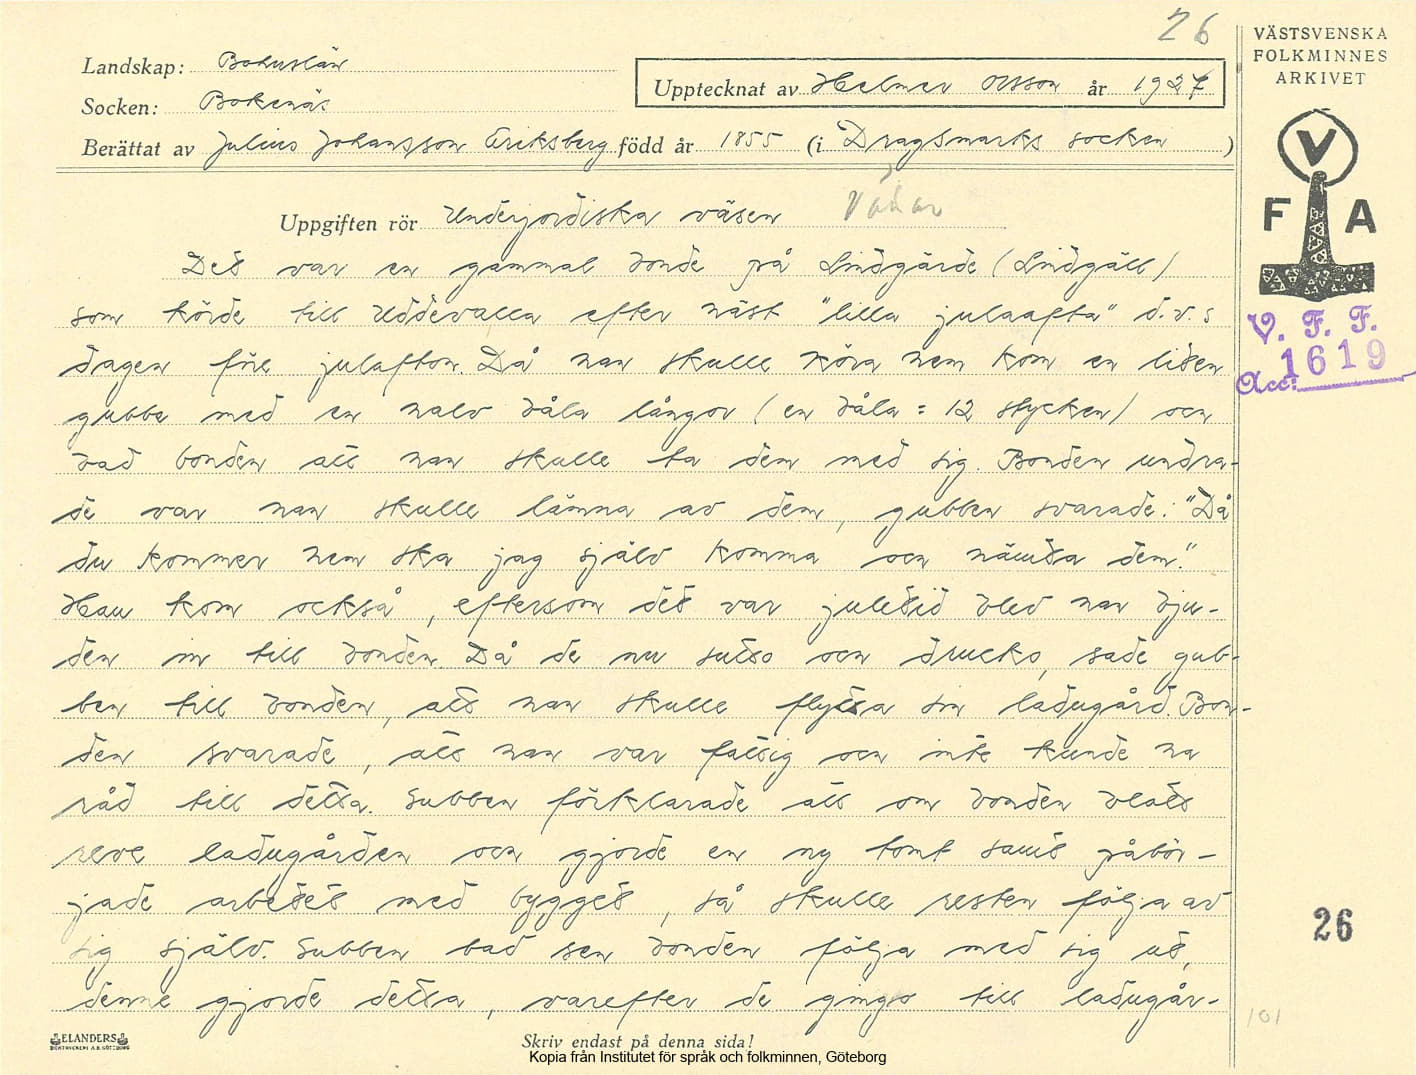 26
VÄSTSVENSKA
FOLKMINNES
ARKIVET
Landskap: Bohuslän
Upptecknat av Helmer Olsson år 1927
Socken: Bokenäs
Berättat av Julius Johansson Eriksberg född år 1855 (i Dragsmarks socken )
V
F A
Uppgiften rör Underjordiska väsen Vättar
Det var en gammal bonde på Lindgärde (Lindgäll)
som körde till Uddevalla efter näst "lilla julaafta" d.v.s
dagen före julafton. Då han skulle köra hem kom en liten
gubbe med en halv våla långor (en våla = 12 stycken) och
bad bonden att han skulle ta dem med sig. Bonden undra-
de var han skulle lämna av dem, gubben svarade: "Då
du kommer hem ska jag själv komma och hämta dem."
Han kom också, eftersom det var juletid blev han bju-
den in till bonden. Då de nu sutto och drucko, sade gub-
ben till bonden, att han skulle flytta sin ladugård. Bon-
den svarade, att han var fattig och inte kunde ha
råd till detta. Gubben förklarade att om bonden blott
reve ladugården och gjorde en ny tomt samt påbör-
jade arbetet med bygget, så skulle resten följa av
sig själv. Gubben bad sen bonden följa med sig ut,
denne gjorde detta, varefter de gingo till ladugår-
V. F. F.
Acc: 1619
26
101
ELANDERS
BOKTRYCKERI A.B. GÖTEBORG
Skriv endast på denna sida!
Kopia från Institutet för språk och folkminnen, Göteborg